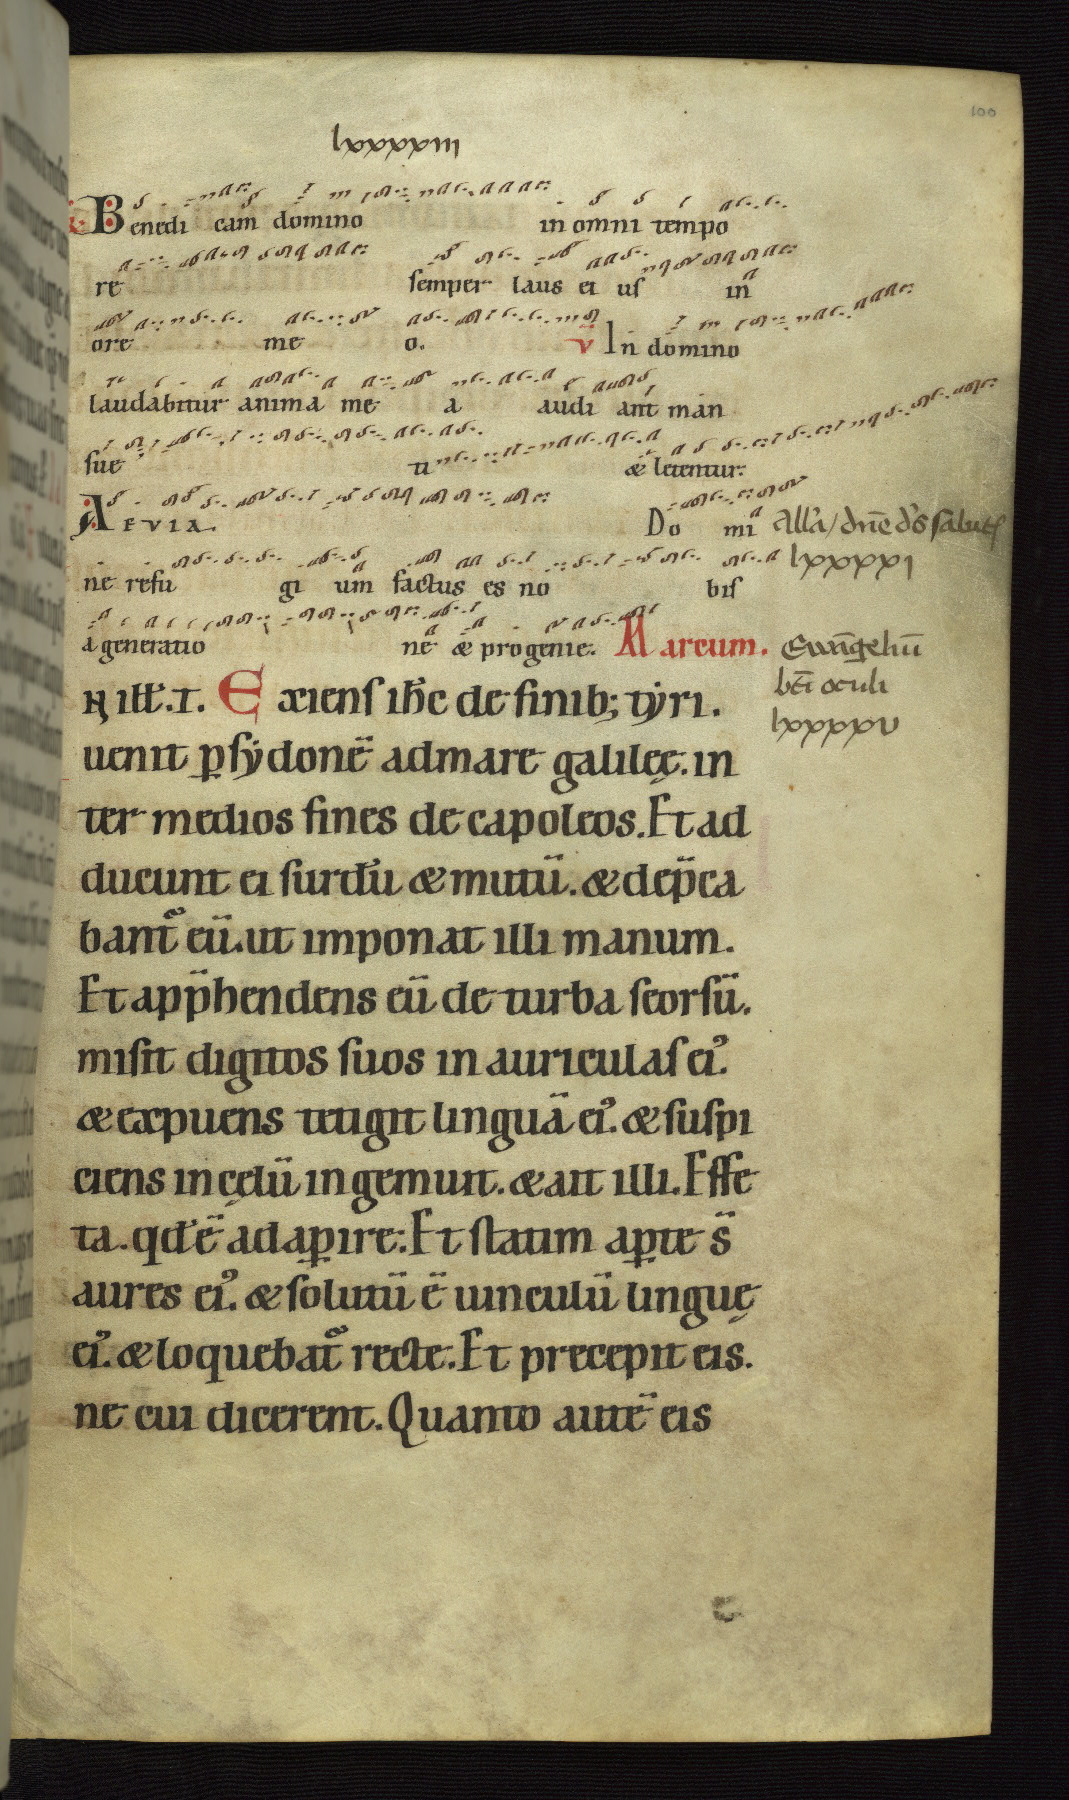 100
lxxxxiii
Benedi cam domino in omni tempo
re semper laus ei us in
ore me o. v̄ In domino
laudabitur anima me a audi ant man
sue ti & letentur:
AEVIA. Do mi
ne refu gi um factus es no bis
a generatio ne & progenie. Marcum.
Allã/dñe ds salutꝭ
lxxxxi
Ewãgeliũ
btĩ oculi
lxxxxv
N ill̃.T. Exiens ih̃c de finib; tẏri.
uenit ꝑ sẏdonẽ admare galileę. in
ter medios fines decapoleos. Et ad
ducunt ei surdũ & mutũ. & dep̃ca
bant᷑ eũ. ut imponat illi manum.
Et app̃hendens eũ de turba seorsũ.
misit digitos suos in auriculas ei᾽.
& expuens tetigit linguã ei᾽. & suspi
ciens in cęlũ ingemuit. & ait illi. Effe
ta. qđ ẽ adaꝑire: Et statim aꝑte s̃
aures ei᾽. & solutũ ẽ uinculũ linguę
ei᾽. & loquebat᷑ recte. Et precepit eis.
ne cui dicerent. Quanto autẽ eis